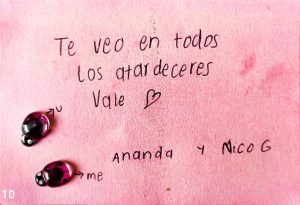 Te veo en todos
los atardeceres
Vale ♡
→u
Ananda y Nico G
→me
10